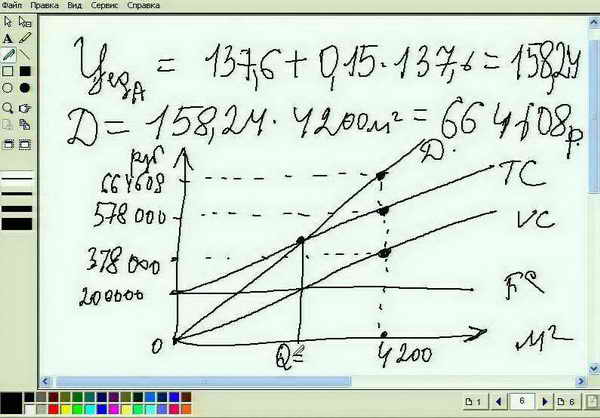 Файл Правка Вид Сервис Справка
Цед A = 137,6 + 0,15 · 137,6 = 158,24
Д = 158,24 · 4200 м² = 664 608 р.
руб
664608
578 000
378 000
200000
0
Д.
TC
VC
FC
Q=
4200
м²
1
6
6